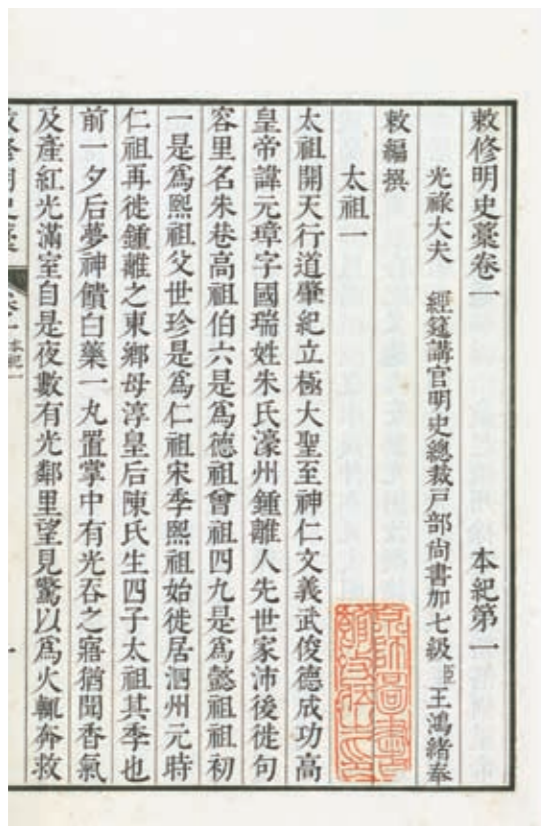 敕修明史稾卷一 本紀第一
光祿大夫 經筵講官明史總裁戶部尚書加七級臣王鴻緒奉
敕編撰
太祖一
太祖開天行道肇紀立極大聖至神仁文義武俊德成功高
皇帝諱元璋字國瑞姓朱氏濠州鍾離人先世家沛後徙句
容里名朱巷高祖伯六是爲德祖曾祖四九是爲懿祖祖初
一是爲熙祖父世珍是爲仁祖宋季熙祖始徙居泗州元時
仁祖再徙鍾離之東鄉母淳皇后陳氏生四子太祖其季也
前一夕后夢神饋白藥一丸置掌中有光吞之寤猶聞香氣
及產紅光滿室自是夜數有光鄰里望見驚以爲火輒奔救
敕修明史稾 卷一 本紀一 一
京師圖書館藏之印